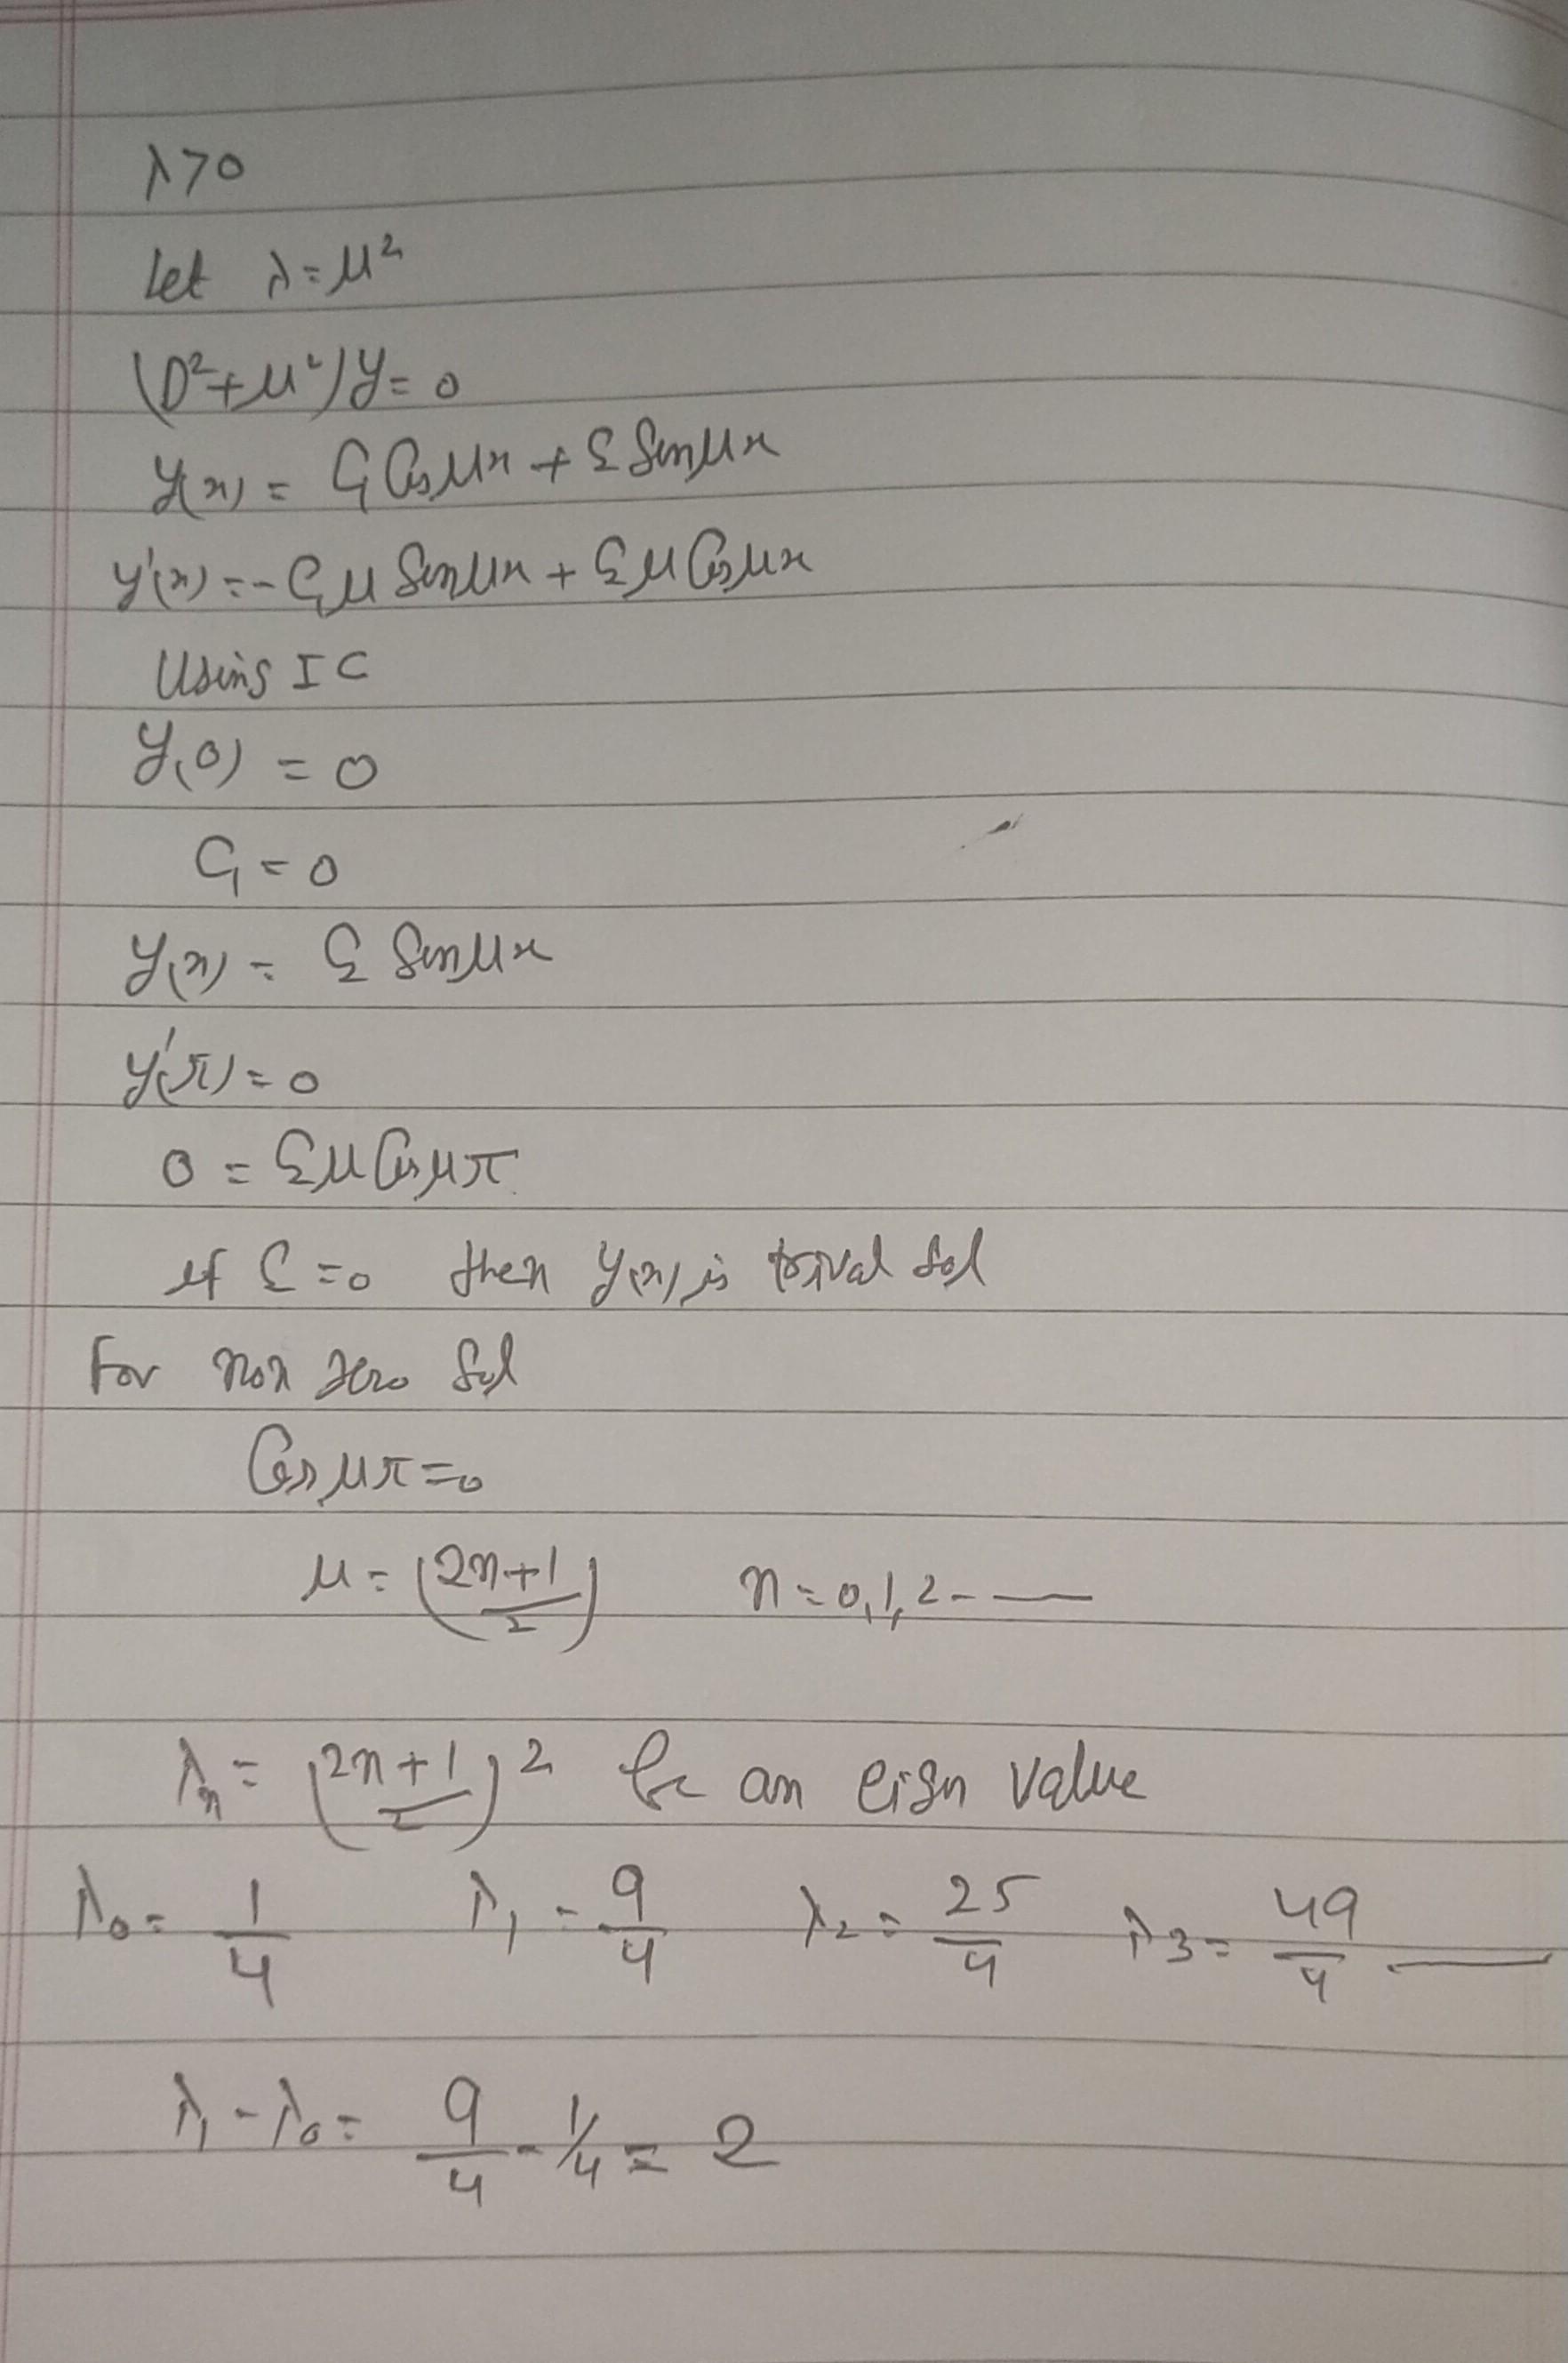 λ>0
Let λ=μ²
(D²+μ²)y=0
y(x) = C₁ Cos μx + C₂ Sin μx
y'(x) = -C₁μ Sin μx + C₂ μ Cos μx
Using IC
y(0) = 0
C₁=0
y(x) = C₂ Sin μx
y'(π)=0
0 = C₂μ Cos μπ
if C₂=0 then y(x) is trival sol
For non zero sol
Cos μπ=0
μ = (2n+1/2) n=0,1,2--—
λₙ = (2n+1/2)² be an eign value
λ₀= 1/4 λ₁ = 9/4 λ₂ = 25/4 λ₃ = 49/4 —
λ₁-λ₀= 9/4 - 1/4 = 2